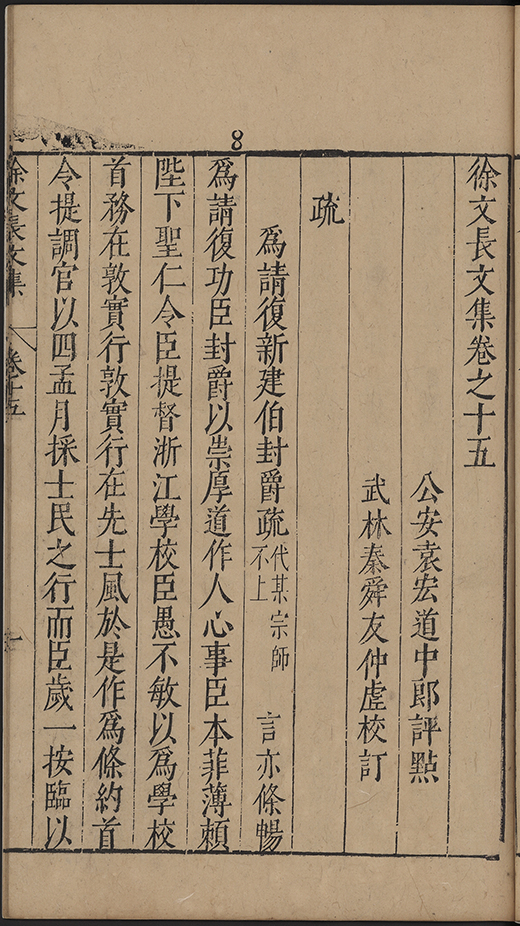 8
徐文長文集卷之十五
公安袁宏道中郎評點
武林秦舜友仲虛校訂
疏
為請復新建伯封爵疏代某宗師不上 言亦條暢
爲請復功臣封爵以崇厚道作人心事臣本菲薄頼
陛下聖仁令臣提督浙江學校臣愚不敏以爲學校
首務在敦實行敦實行在先士風於是作爲條約首
令提調官以四孟月採士民之行而臣歲一按臨以
徐文長文集 卷十五 一